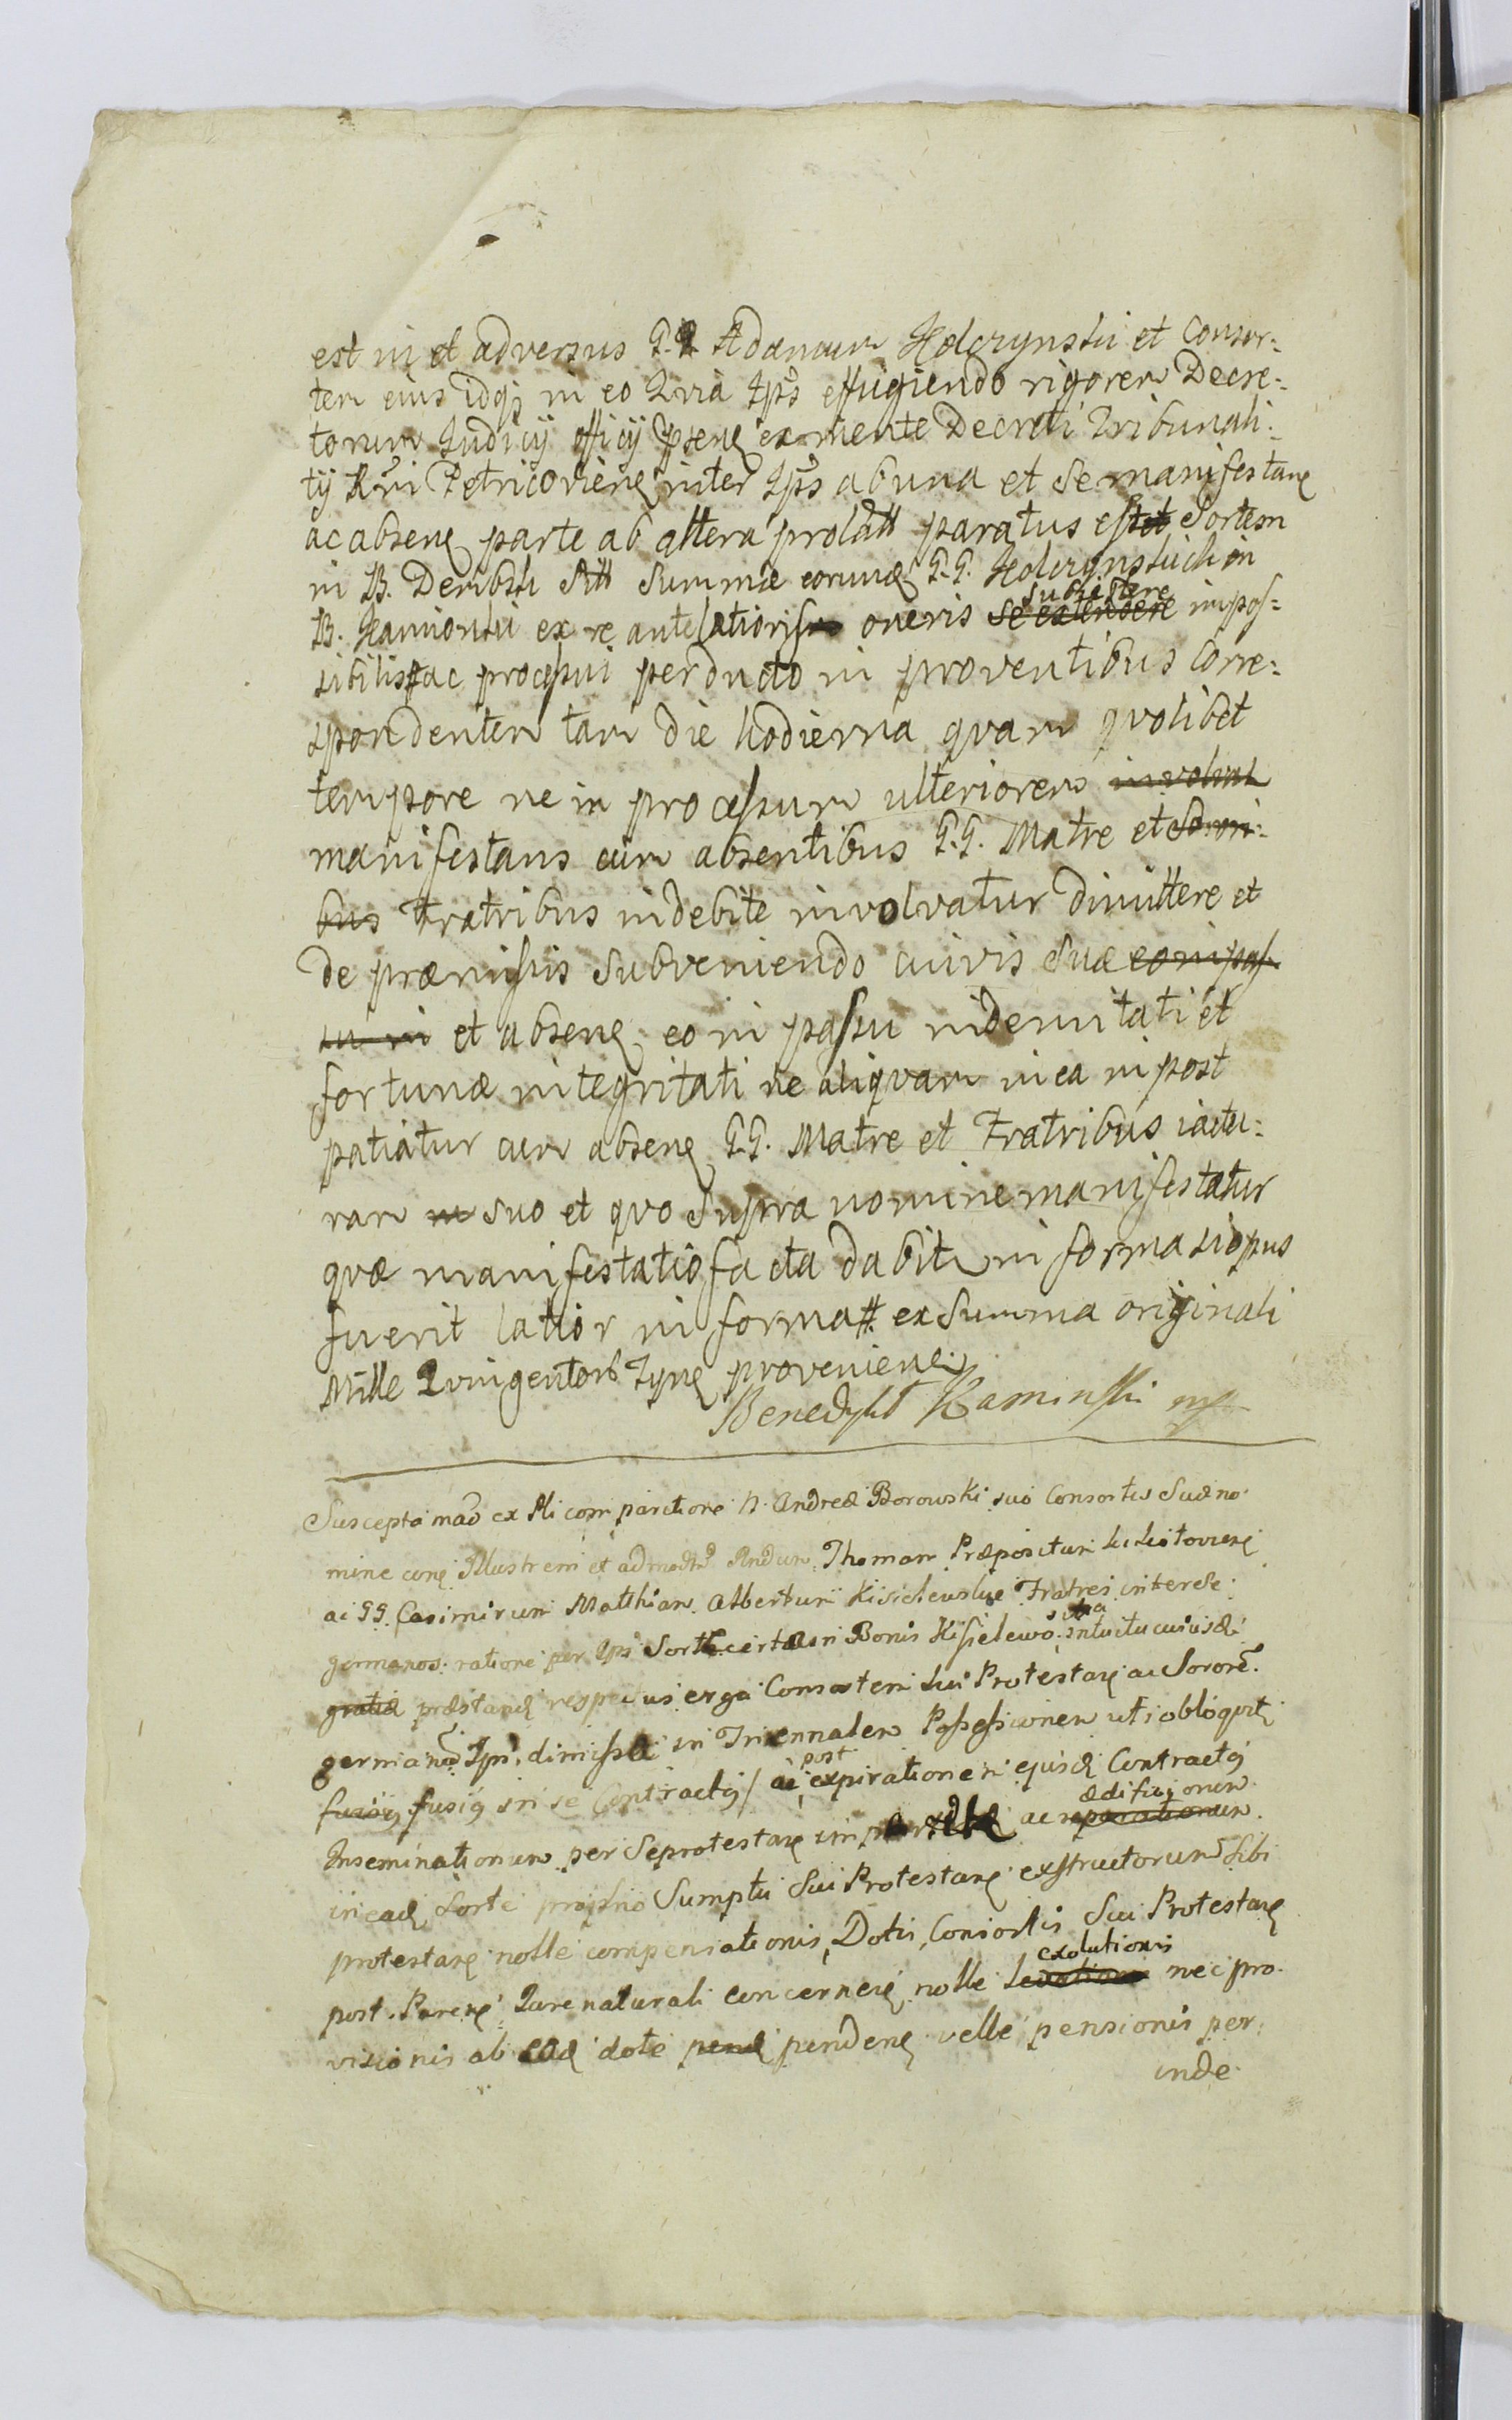 est in et adversus G.G. Adamum Holczynski et Consor:
tem eius idqz in eo Qvia Ipss effugiendo rigorem Decre:
torum Iudicij officij psenę ex mente Decreti Tribunali:
tij Rni Petricoviensę inter Ipss ab una et se manifestanę
ac absenę parte ab altera prolatt paratus est et Sortem
in B. Dembsk Sitt Summæ eorundę G.G. Holczynskich in
subsistere
B. Kamionski ex re antelatioris oneris se extendere impos:
sibilis ac processui perducto in proventibus Corre:
spondentem tam die hodierna qvam qvolibet
tempore ne in processum ulteriorem involvat
manifestans cum absentibus G.G. Matre et Sorori:
bus Fratribus indebite involvatur dimittere et
de præmissis subveniendo cuivis suæ eo in pas
su in et absenę eo in passu indemnitati et
fortunæ integritati ne aliqvam in ea in post
patiatur cum absenę G.G. Matre et Fratribus iactu:
ram in suo et qvo supra nomine manifestatur
qvæ manifestatio facta dabitur in forma si opus
fuerit latior in forma #. ex Summa originali
Mille Qvingentorb Tynę provenienę.
Benedykt Kaminski mp
Suscepta mab ex Pli comparitione N. Andreæ Borowski suo Consortis Suæ no
mine conę Illustrem et admodum Rndum Thomam Præpositum
ac GG. Casimirum Mathiam Albertum Kisielewskie Fratres inter se
sitta
germanos ratione per Ips Sortę certæ in Bonis Kisielewo intuitu cuiusdę
gratiæ præstandę respectus erga Consortem Sui Protestanę ac Sororē
germanā Ips dimissæ in Triennalem Possessionem uti obloqvit
post
fusiqz fusiq in se Contractq / ac expirationem ejusdę Contractq
ædificiorum
Inseminationum per Se protestanę ac reparationum
in eadę Sorte proprio Sumptu Sui Protestanę exstructorum Sibi
protestanę nolle compensationis, Dotis, Consortis Sui Protestanę
exolutionis
post Parenę Iure naturali concernenę nolle nec pro
visionis ab eadę dote pendę pendenę velle pensionis per
inde